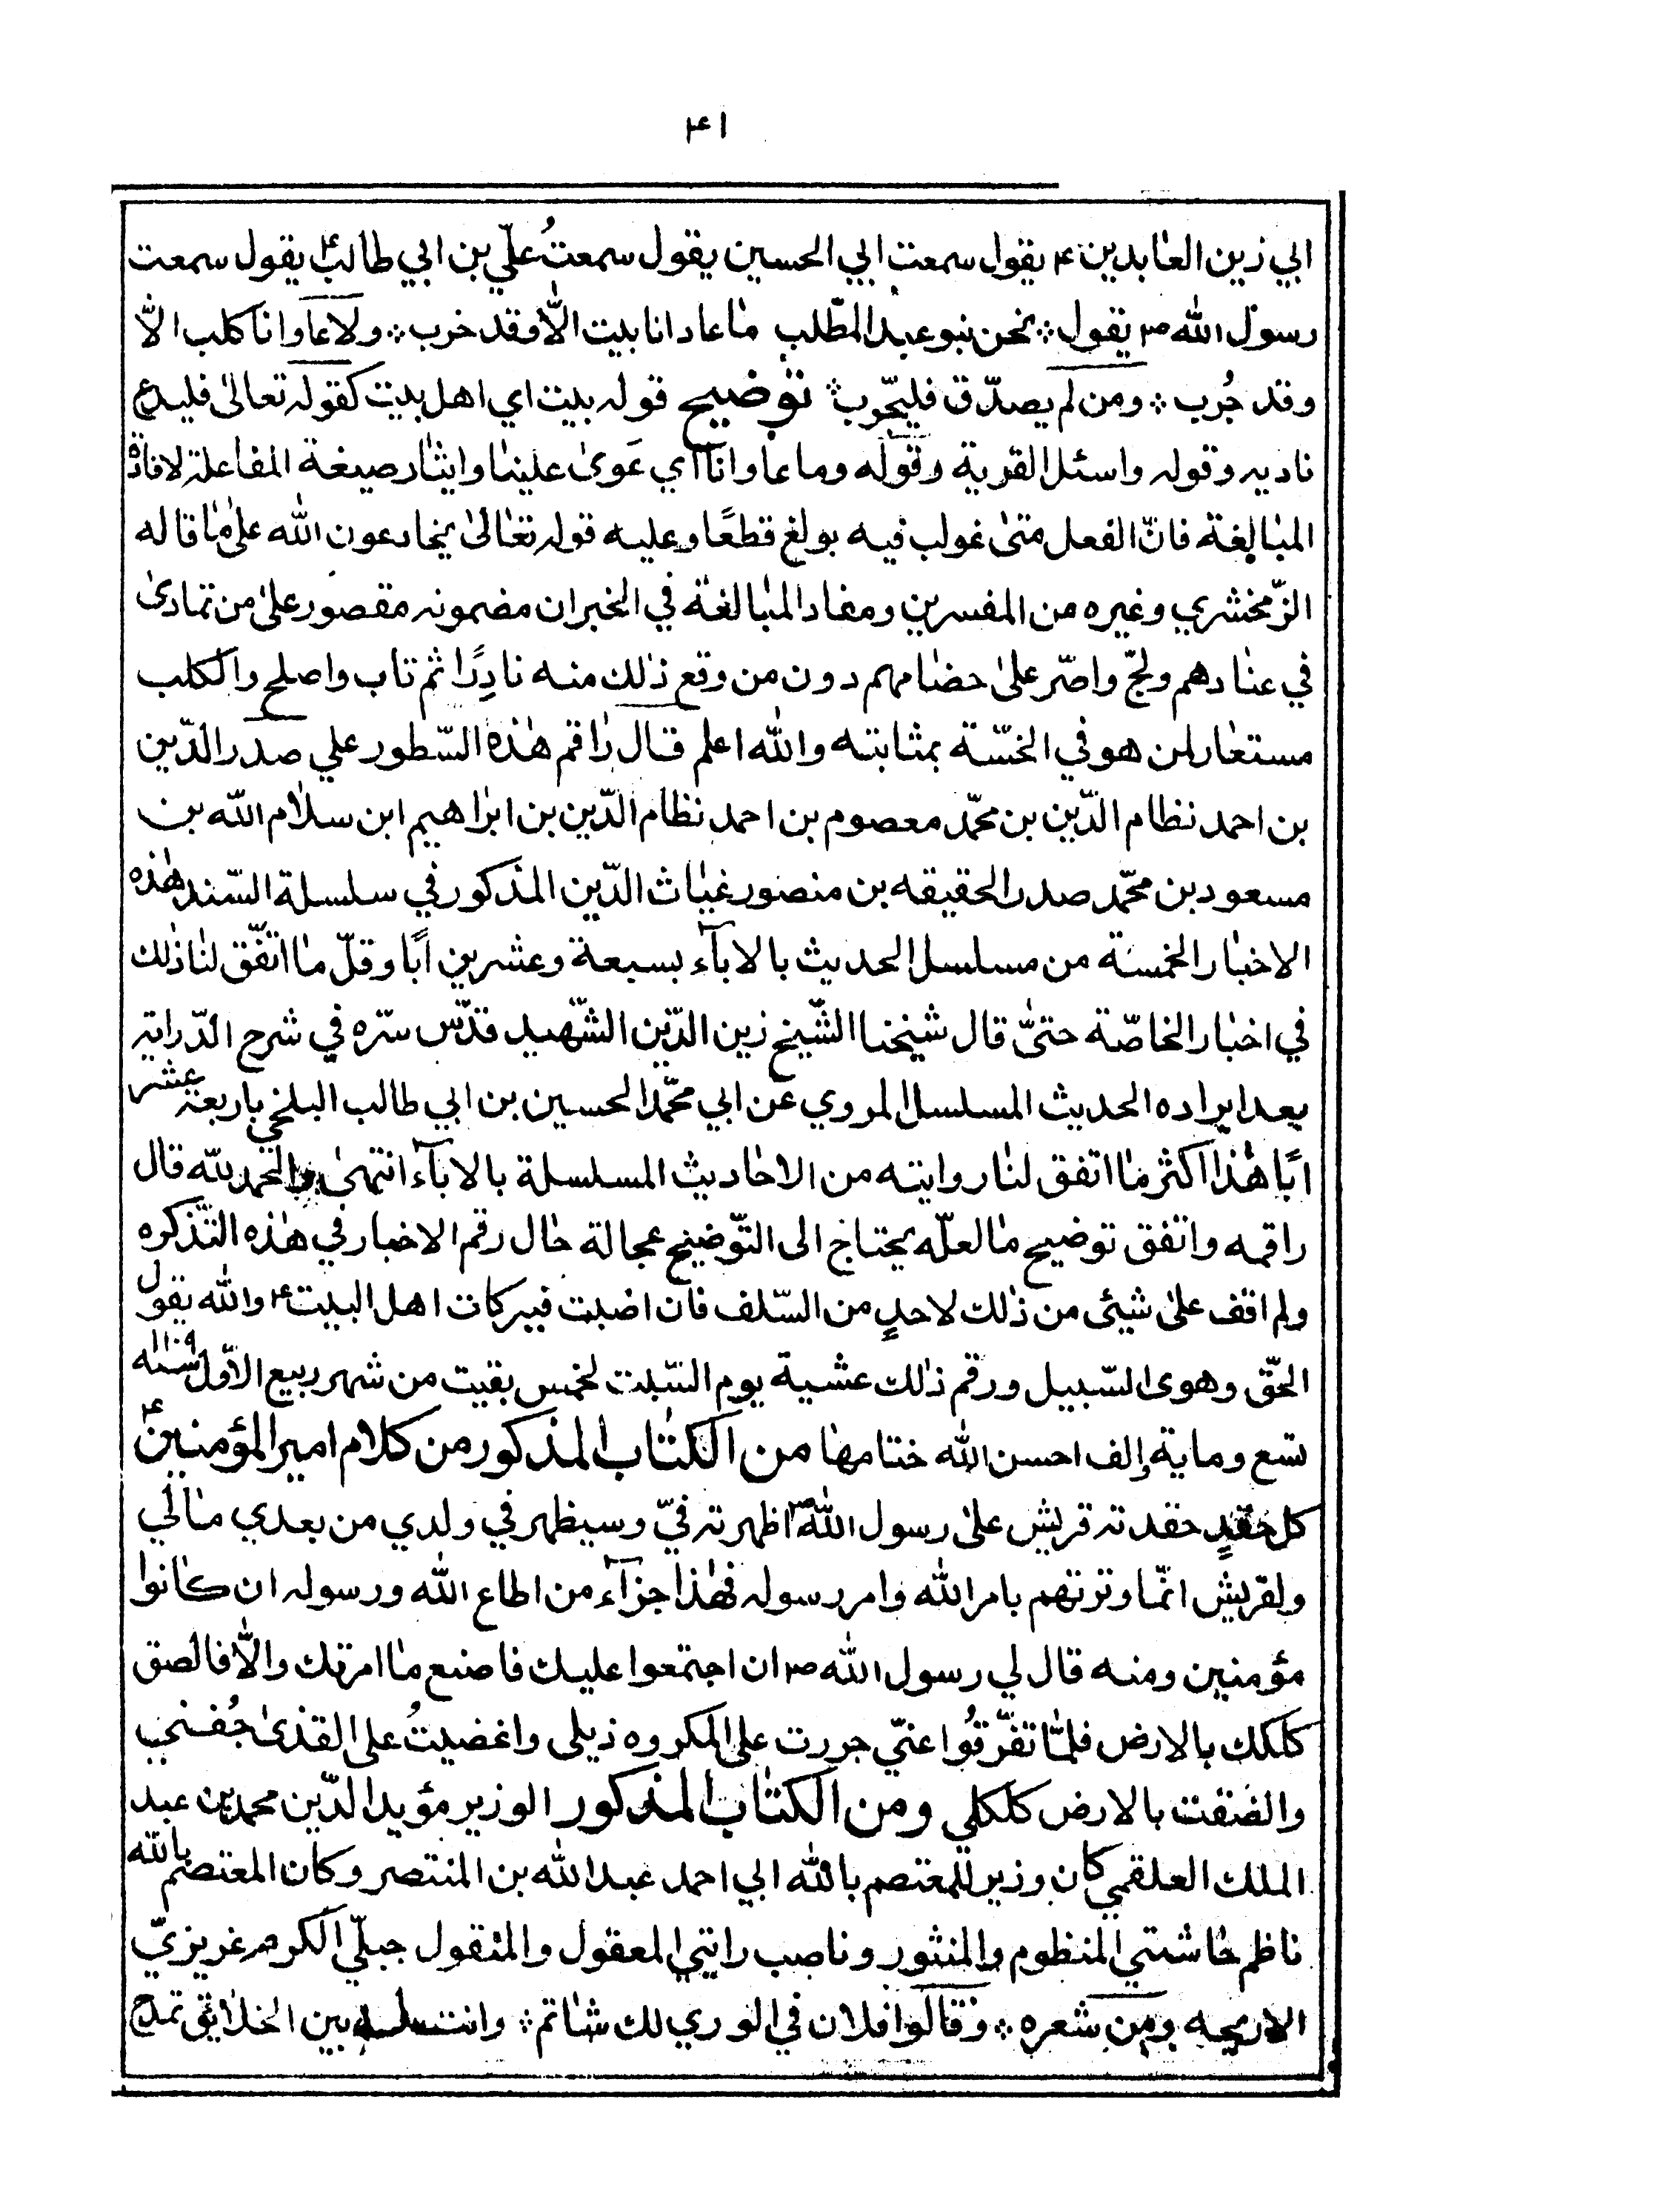 ٤١
ابي زين العابدين ع يقول سمعت ابي الحسين يقول سمعتُ عليّ بن ابي طالب ع يقول سمعت
رسول الله ص يقول ؞ نحن بنو عبد المطّلب ما عادانا بيت الّا وقد خرب ؞ ولا عاوانا كلب الّا
وقد جُرب ؞ ومن لم يصدّق فليجّرب ؞ توضيح قوله بيت اي اهل بيت كقوله تعالى فليدع
ناديه وقوله واسئل القرية وقوله وما عاوانا اي عَوىٰ علينا وايثار صيغة المفاعلة لافادة
المبالغة فانّ الفعل متىٰ غولب فيه بولغ قطعًا وعليه قوله تعالىٰ يخادعون الله علىٰ ما قاله
الزّمخشري وغيره من المفسرين ومفاد المبالغة في الخبر ان مضمونه مقصور علىٰ من تمادىٰ
في عنادهم ولجّ واصّر علىٰ خصامهم دون من وقع ذٰلك منه نادِرًا ثم تاب واصلح والكلب
مستعار لمن هو في الخسّة بمثابته والله اعلم قال راقم هٰذه السّطور علي صدر الدّين
بن احمد نظام الدّين بن محمّد معصوم بن احمد نظام الدّين بن ابراهيم ابن سلام الله بن
مسعود بن محمّد صدر الحقيقه بن منصور غياث الدّين المذكور في سلسلة السّند هٰذه
الاخبار الخمسة من مسلسل الحديث بالاباۤء بسبعة وعشرين ابًا وقلّ ما اتّفق لنا ذٰلك
في اخبار الخاصّة حتىّٰ قال شيخنا الشّيخ زين الدّين الشّهيد قدّس سّره في شرح الدّراية
بعد ايراده الحديث المسلسل المروي عن ابي محمّد الحسين بن ابي طالب البلخي باربعة عشر
ابًا هٰذا اكثر ما اتفق لنا روايته من الاحاديث المسلسلة بالاباۤء انتهىٰ والحمد لله قال
راقمه واتفق توضيح ما لعلّه يحتاج الى التّوضيح عجالة حال رقم الاخبار في هٰذه التّذكره
ولم اقف علىٰ شيئى من ذٰلك لاحدٍ من السّلف فان اصبت فببركات اهل البيت ع والله يقول
الحّق وهوى السّبيل ورقم ذٰلك عشية يوم السّبت لخمس بقيت من شهر ربيع الاوّل سنه ١١٠٩
تسع وماية والف احسن الله ختامها من الكتاب المذكور من كلام امير المؤمنين ع
كل حقدٍ حقدته قريش علىٰ رسول الله ص اظهرته فيّ وسيظهر في ولدي من بعدي مالي
ولقريش انّما وترتهم بامر الله وامر رسوله فهٰذا جزاۤء من اطاع الله ورسوله ان كانوا
مؤمنين ومنه قال لي رسول الله ص ان اجتمعوا عليك فاصنع ما امرتك والّا فالصق
كلكك بالارض فلمّا تفّرقُوا عنّي جررت على المكروه ذيلى واغضيتُ على القذىٰ جُفني
والصقت بالارض كلكلي ومن الكتاب المذكور الوزير مؤيد الدّين محمد بن عبد
الملك العلقمي كان وزير للمعتصم بالله ابي احمد عبد الله بن المنتصر وكان المعتصم بالله
ناظم حاشتي المنظوم والمنثور وناصب رايتي المعقول والمنقول جبلّي الكرم غريزيّ
الاريحيه ومن شعره ؞ وقالوا فلان في الوري لك شاتم ؞ وانت له بين الخلائق تمدح